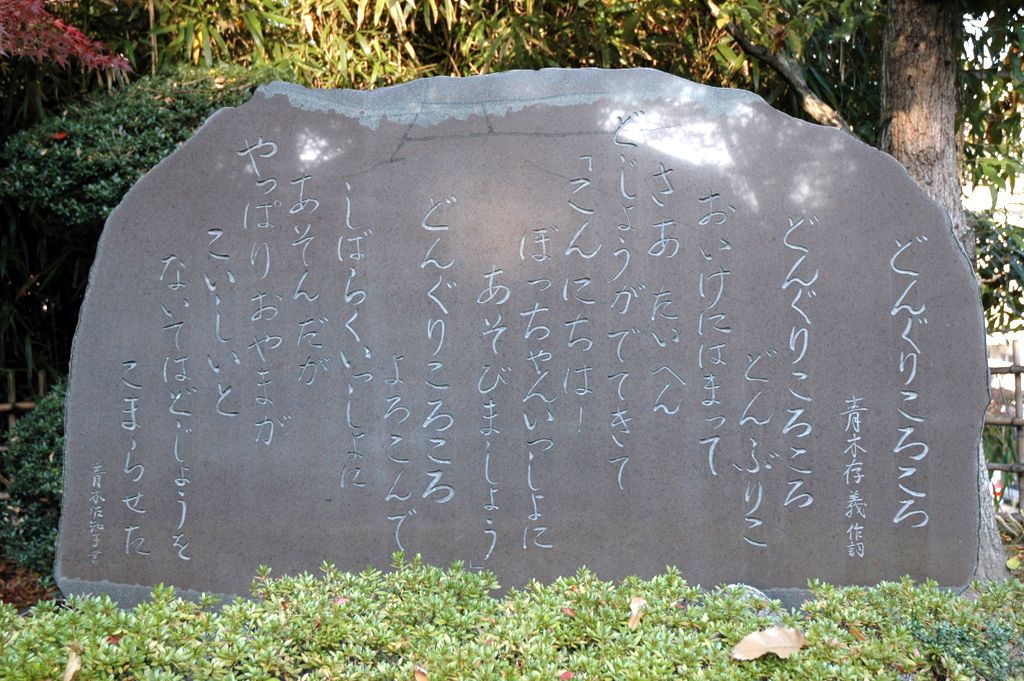 どんぐりころころ
青木存義作詞
どんぐりころころ
どんぶりこ
おいけにはまって
さあ たいへん
どじょうがでてきて
「こんにちはー
ぼっちゃんいっしょに
あそびましょう」
どんぐりころころ
よろこんで
しばらくいっしょに
あそんだが
やっぱりおやまが
こいしいと
ないてはどじょうを
こまらせた
青木佐知子書